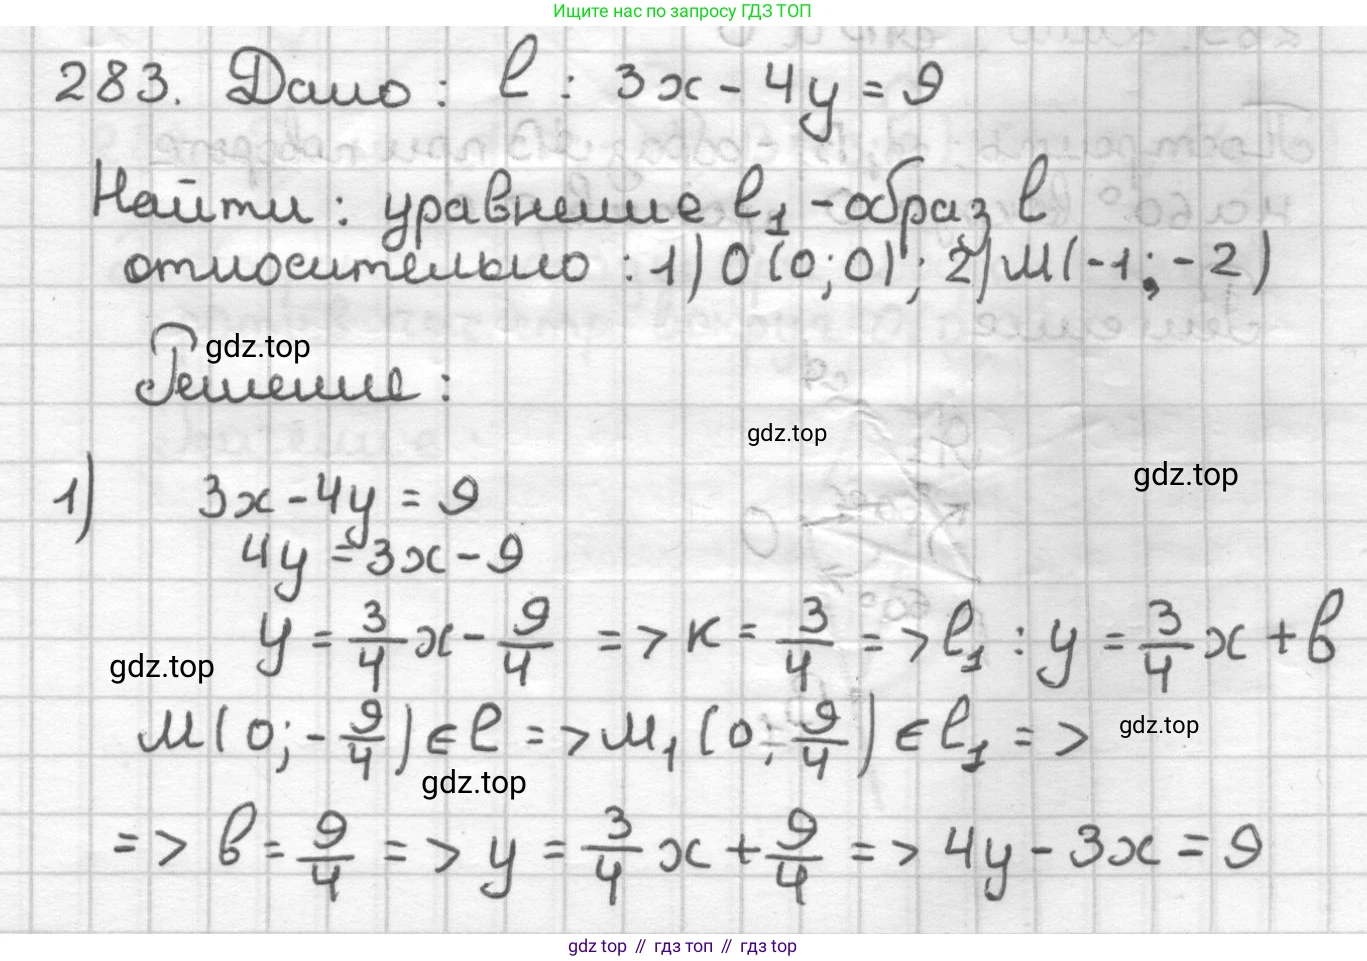 Ищите нас по запросу ГДЗ ТОП
283. Дано: l: 3x - 4y = 9
Найти: уравнение l₁ - образ l
относительно: 1) O(0; 0); 2) M(-1; -2)
gdz.top
Решение:
gdz.top
gdz.top
1) 3x - 4y = 9
4y = 3x - 9
y = 3/4 x - 9/4 => к = 3/4 => l₁: y = 3/4 x + b
gdz.top
M(0; -9/4) ∈ l => M₁(0; 9/4) ∈ l₁ =>
gdz.top
gdz.top
=> b = 9/4 => y = 3/4 x + 9/4 => 4y - 3x = 9
gdz top // гдз топ // гдз top